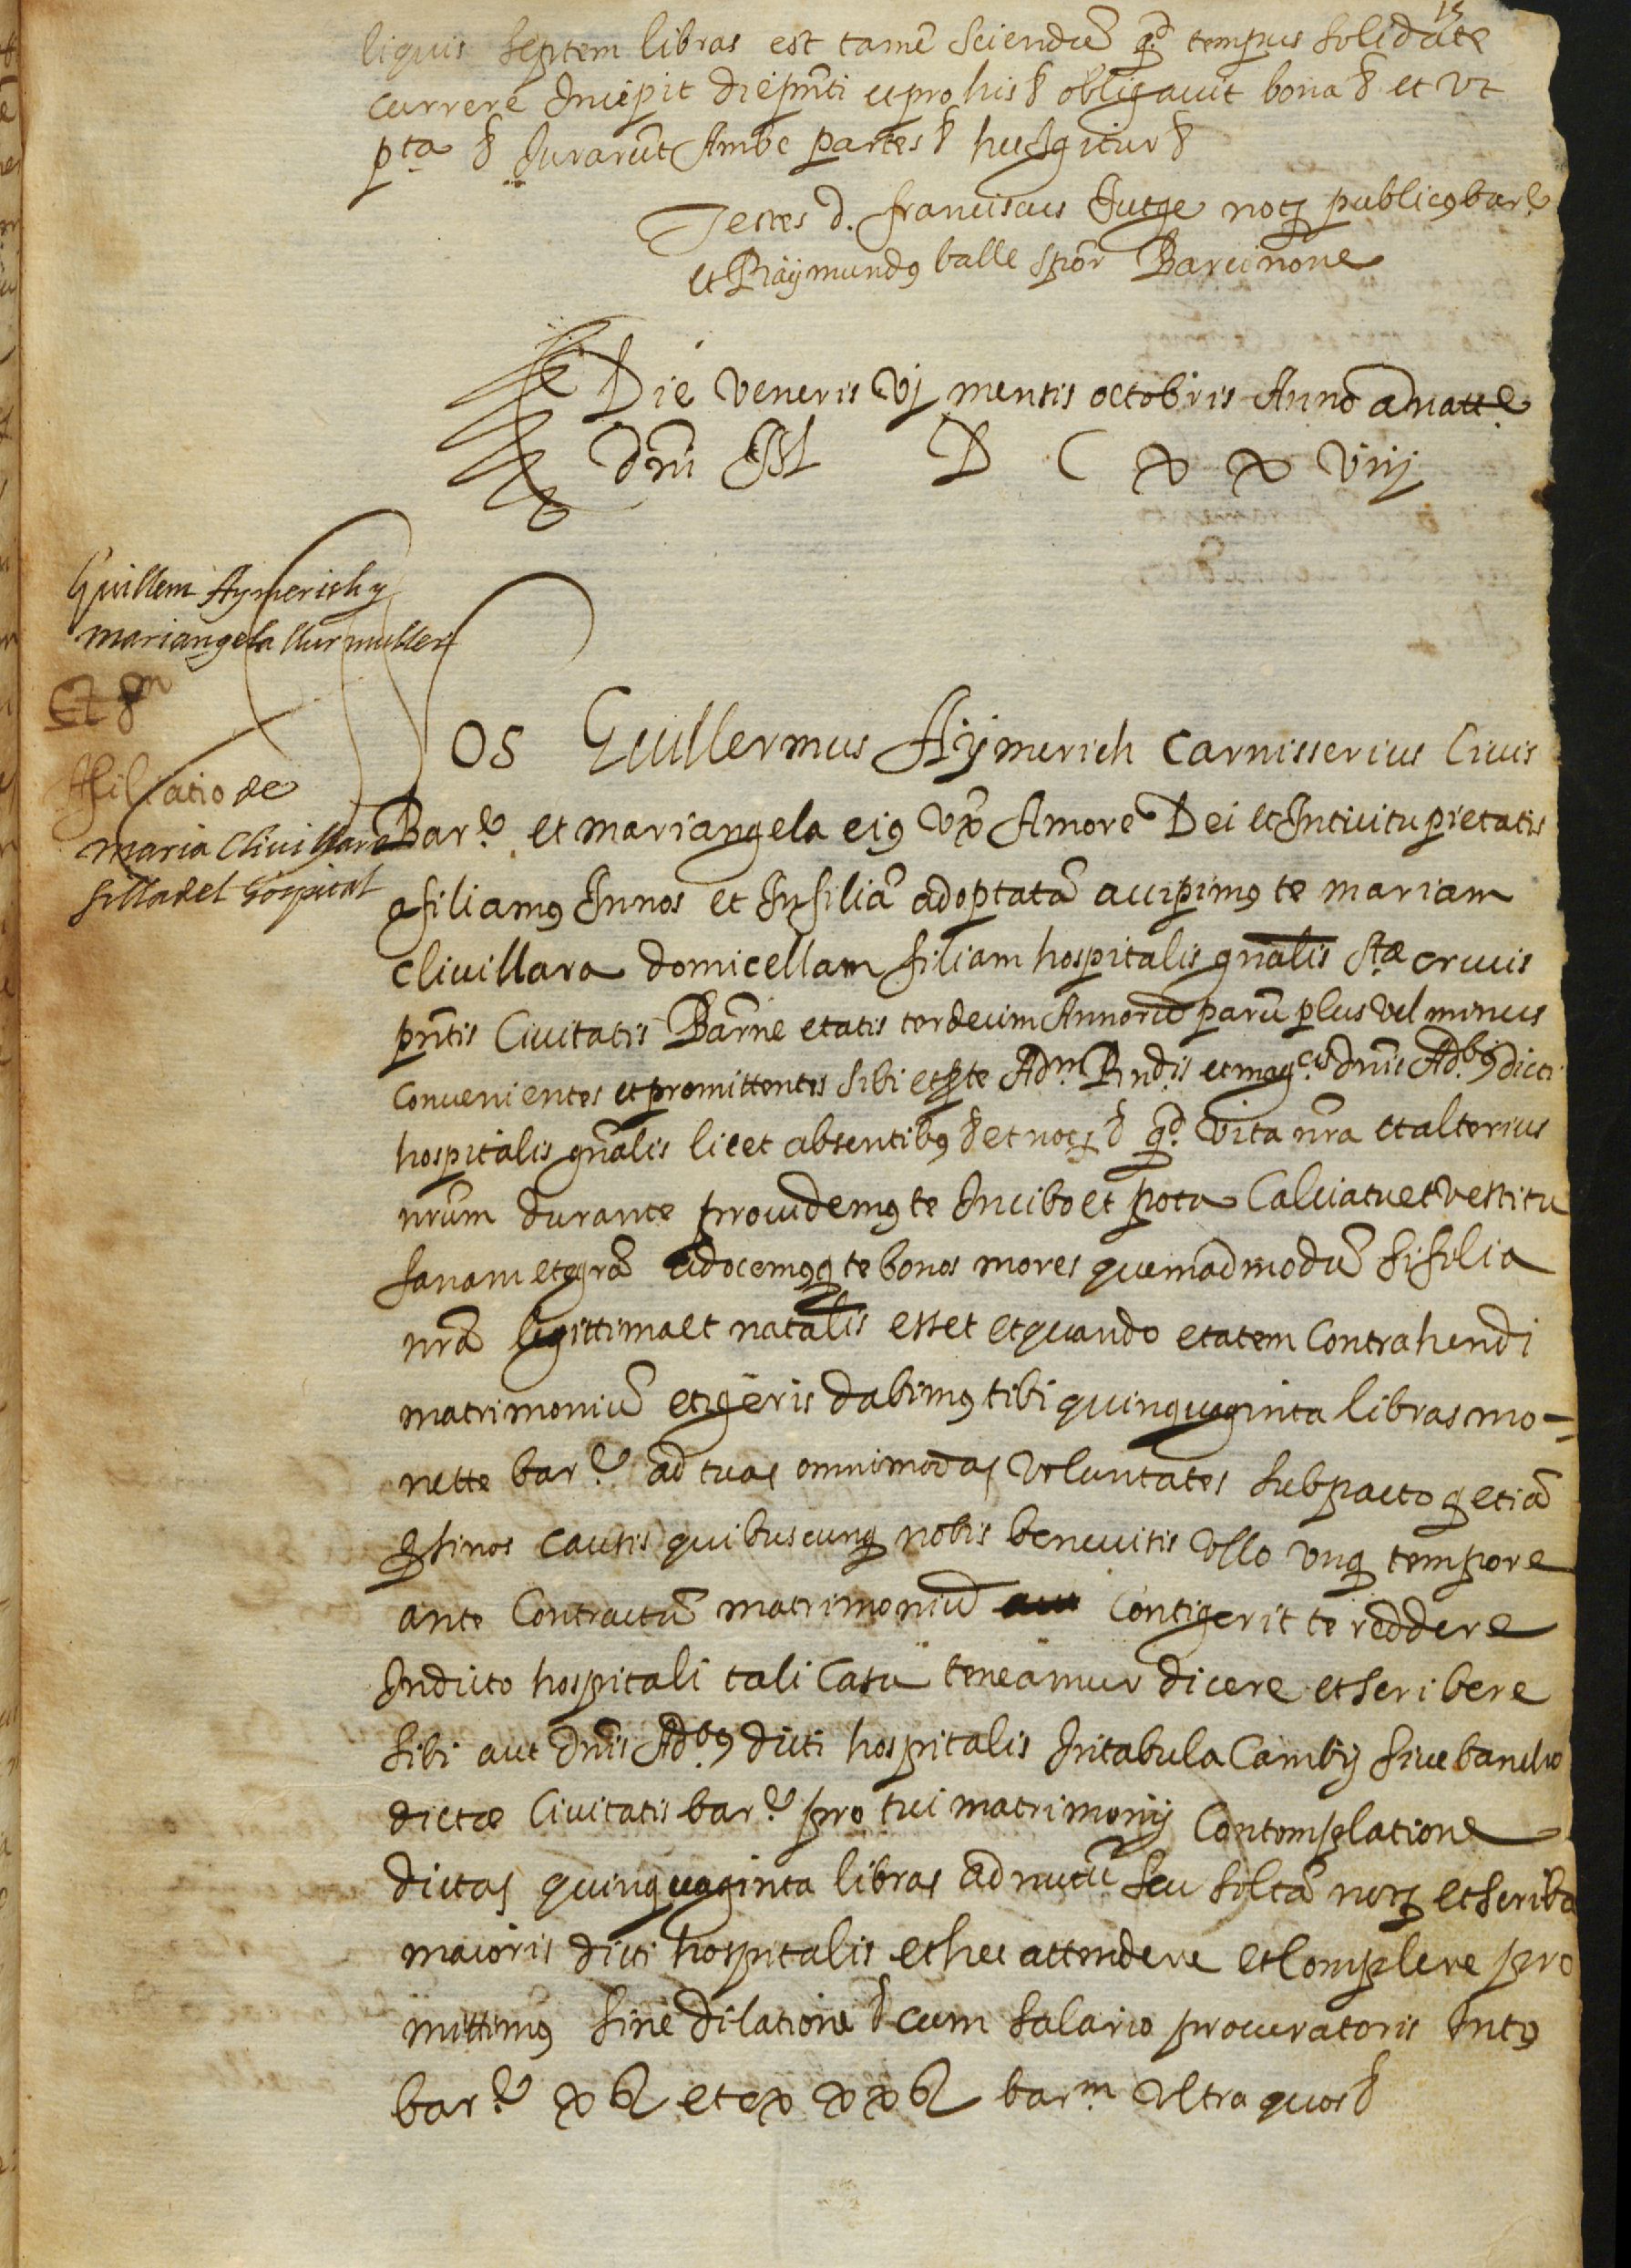 15
liquis septem libras est tamē sciendū q̄d tempus solidate
currere Incipit die pn̄ti et pro his & obligavit bona & et ut
pta & Jurarūt Ambe partes & hec Igitur &
Testes d. franciscus Jutge notꝫ publicꝯ barᵉ
et Raÿmundꝯ balle spōr Barcinone
Die veneris vj mensis octobris Anno a natte
dn̄i M D C x x viij
Guillem Aymerich y
mariangela llur muller
Et &m
Afiliatio de
maria Clivillara
filla del hospital
Nos Guillermus Aÿmerich carnisserius Civis
Barᵉ et mariangela eiꝯ vx̄ Amore Dei et Intuitu pietatis
afiliamꝯ In nos et In filiā adoptatā accipimꝯ te mariam
clivillara domicellam filiam hospitalis gn̄alis Stæ crucis
pn̄tis Civitatis Barn̄e etatis terdecim Annorū parū plus vel minus
Convenientes et promittentes tibi et p te Adm. Rndis et magcis dn̄is Adbꝯ dicti
hospitalis gn̄alis licet absentibꝯ & et notꝫ & q̄d vita nr̄a et alterius
nr̄um durante providemꝯ te In cibo et potu Calciatu et vestitu
sanam et egrā edocemꝯqꝫ te bonos mores quemadmodū si filia
nr̄a legittima et natālis esset et quando etatem Contrahendi
matrimoniū etigeris dabimꝯ tibi quinquaginta libras mo=
nette barᵉ ad tuas omnimodas voluntates sub pacto q etiā
q si nos causis quibuscunqꝫ nobis benevisis vllo vnqꝫ tempore
ante Contractū matrimoniū Contigerit te reddere
In dicto hospitali tali Casu teneamur dicere et scribere
tibi aut dn̄is Adbꝯ dicti hospitalis In tabula Cambij sive bancho
dictæ Civitatis barᵉ pro tui matrimonij Contemplatione
dictas quinquaginta libras ad nutū seu soltā notꝫ et scriba
maioris dicti hospitalis et hec attendere et Complere pro
mittimꝯ sine dilatione & cum salario procuratoris Intꝯ
barᵉ x ß et ex x x ß barm vltra quos &